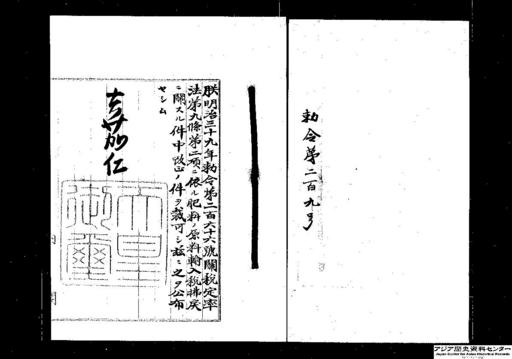 勅令第二百九号
朕明治三十九年勅令第二百六十六號關税定率
法第九條第二項ニ依ル肥料ノ原料輸入税拂戻
ニ關スル件中改正ノ件ヲ裁可シ茲ニ之ヲ公布
セシム
嘉仁
天皇御璽
アジア歴史資料センター
Japan Center for Asian Historical Records